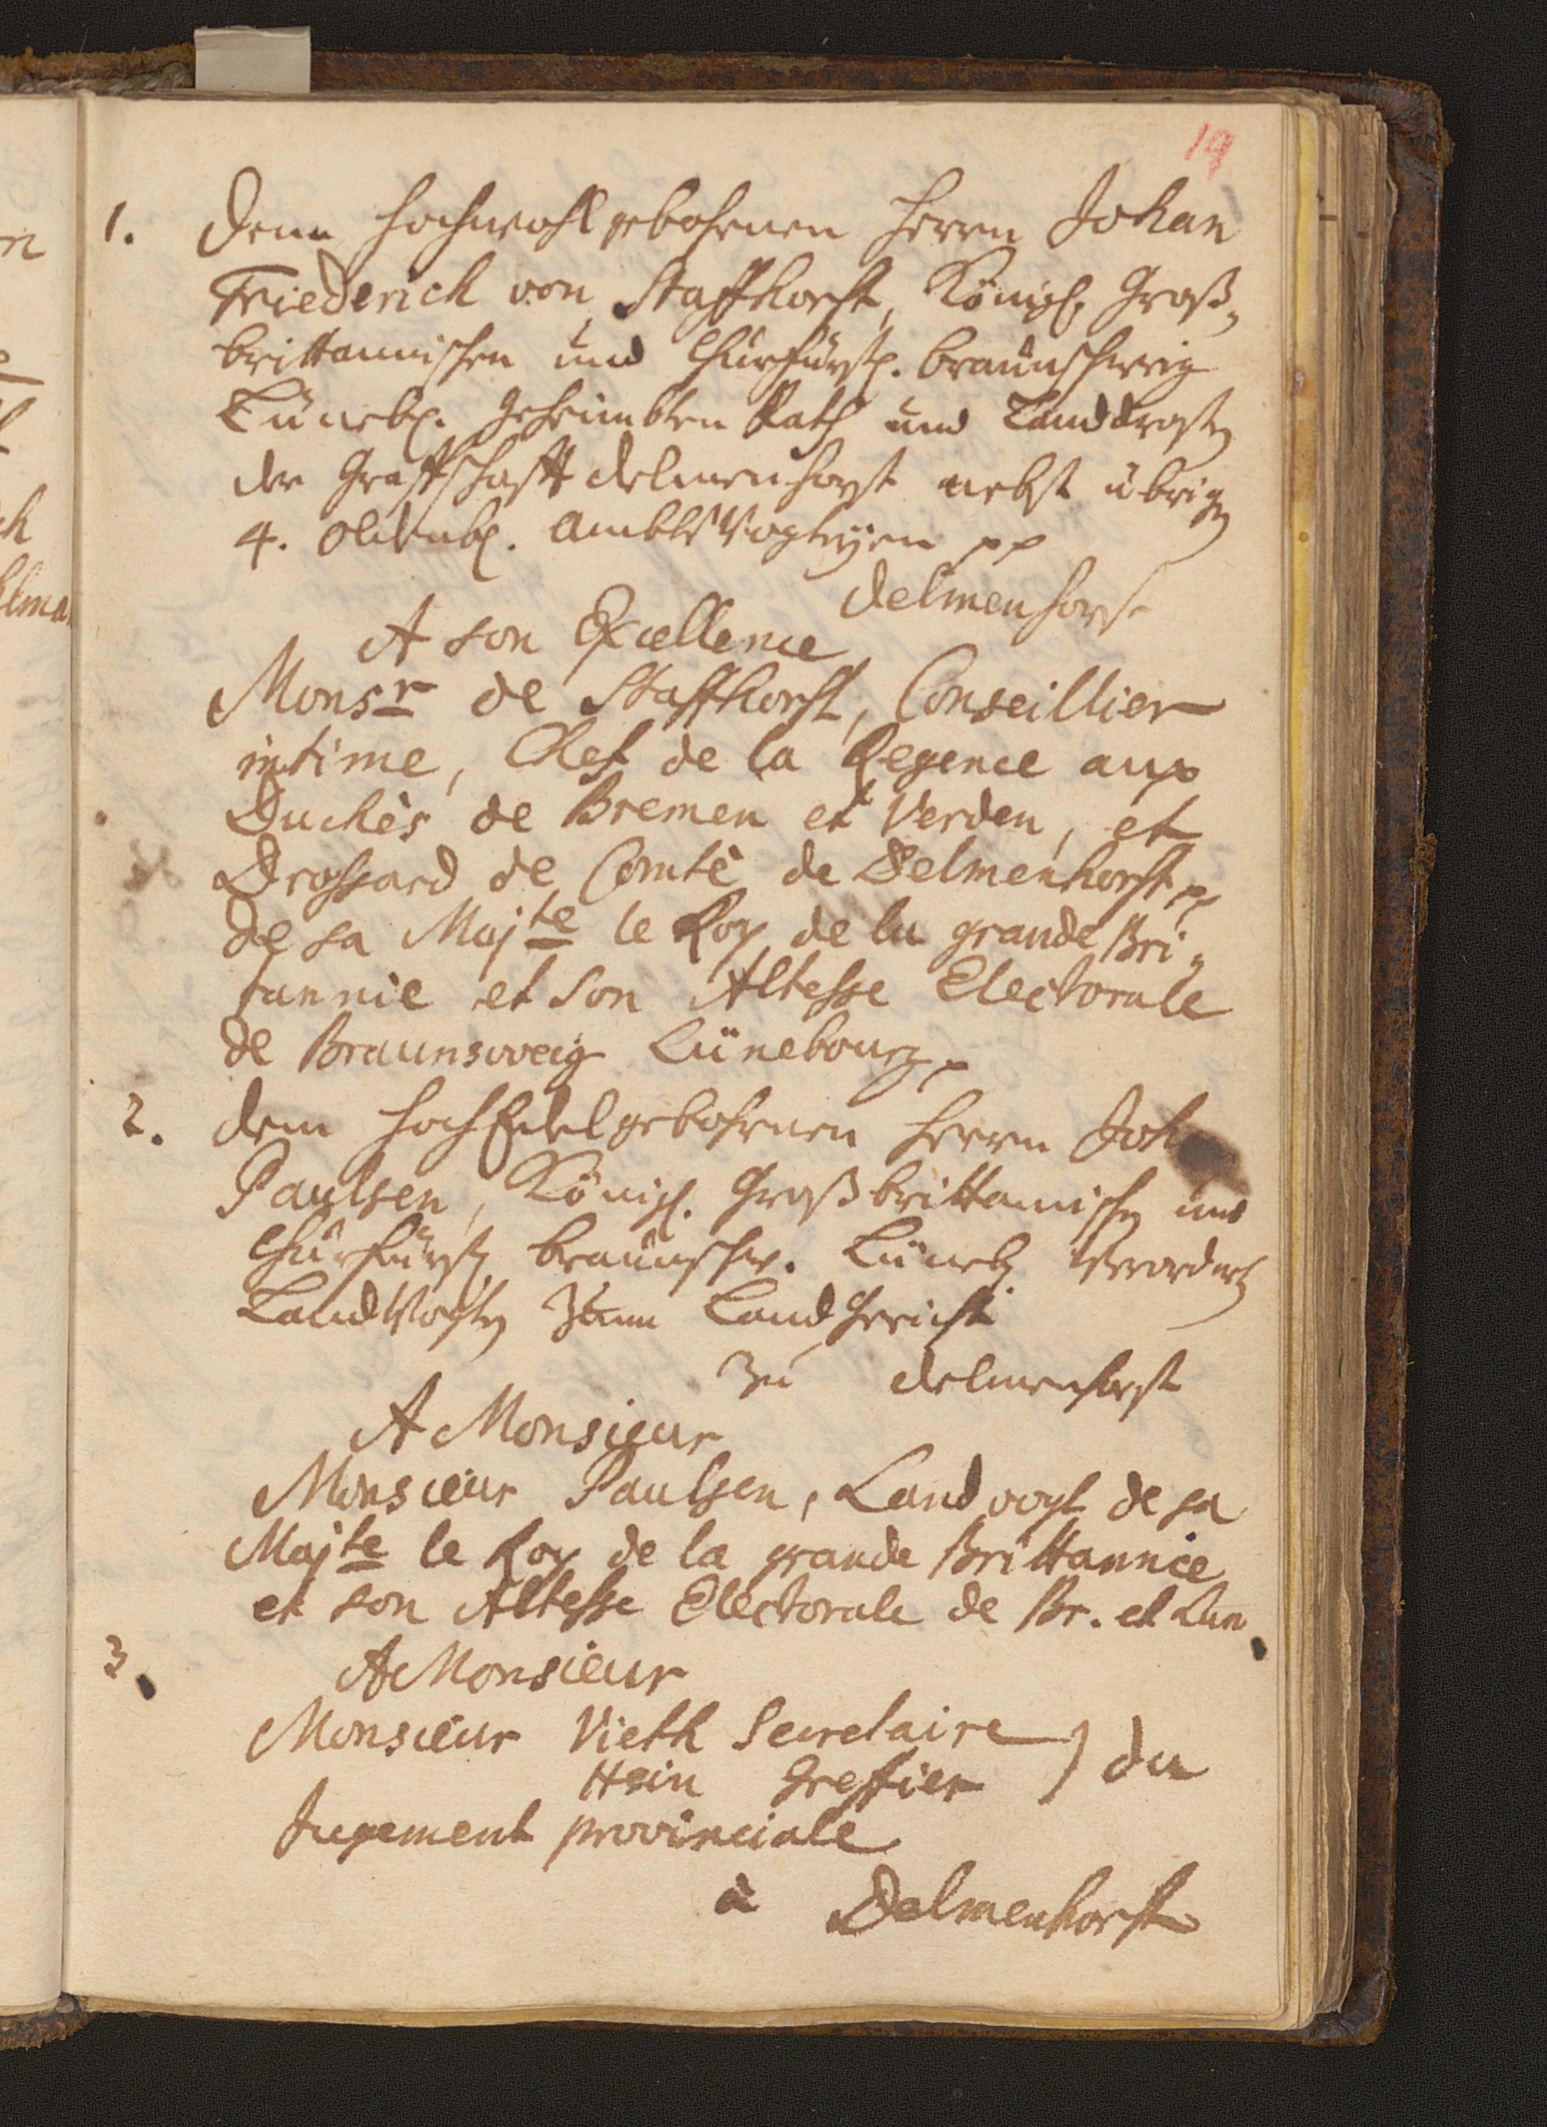 19
1. Dem Hochwohlgebohrnen Herrn Johan
Friederich von Staffhorst, Königl. Groß-
brittannischen und Churfürstl. Braunschweig
Lünebl. Geheimbten Rath und Landdrosten
der Graffschafft Delmenhorst nebst übrigen
4. Oldenbl. AmbtsVogteyen pp
Delmenhorst
A son Excellence
Monsr de Staffhorst, Conseillier
intime, Chef de la Regence aux
Duchès de Bremen et Verden, et
Drossard de Comtè de Delmenhorst pp
de sa Majte le Roy de la grande Bri-
tannie et son Altesse Electorale
de Braunsweig Lünebourg.
2. Dem HochEdelgebohrnen Herrn Joh
Paulsen, Königl. Großbrittannischen und
Churfürstl. Braunschw. Lünebl. Verordneten
LandVogten zum LandGericht
zu Delmenhorst
A Monsieur
Monsieur Paulsen, Landvogt de sa
Majte le Roy de la grande Brittannie
et son Altesse Electorale de Br. et Lun.
3. A Monsieur
Monsieur Vieth Secretaire ) du
Hein Greffier
Jugement provinciale
à Delmenhorst